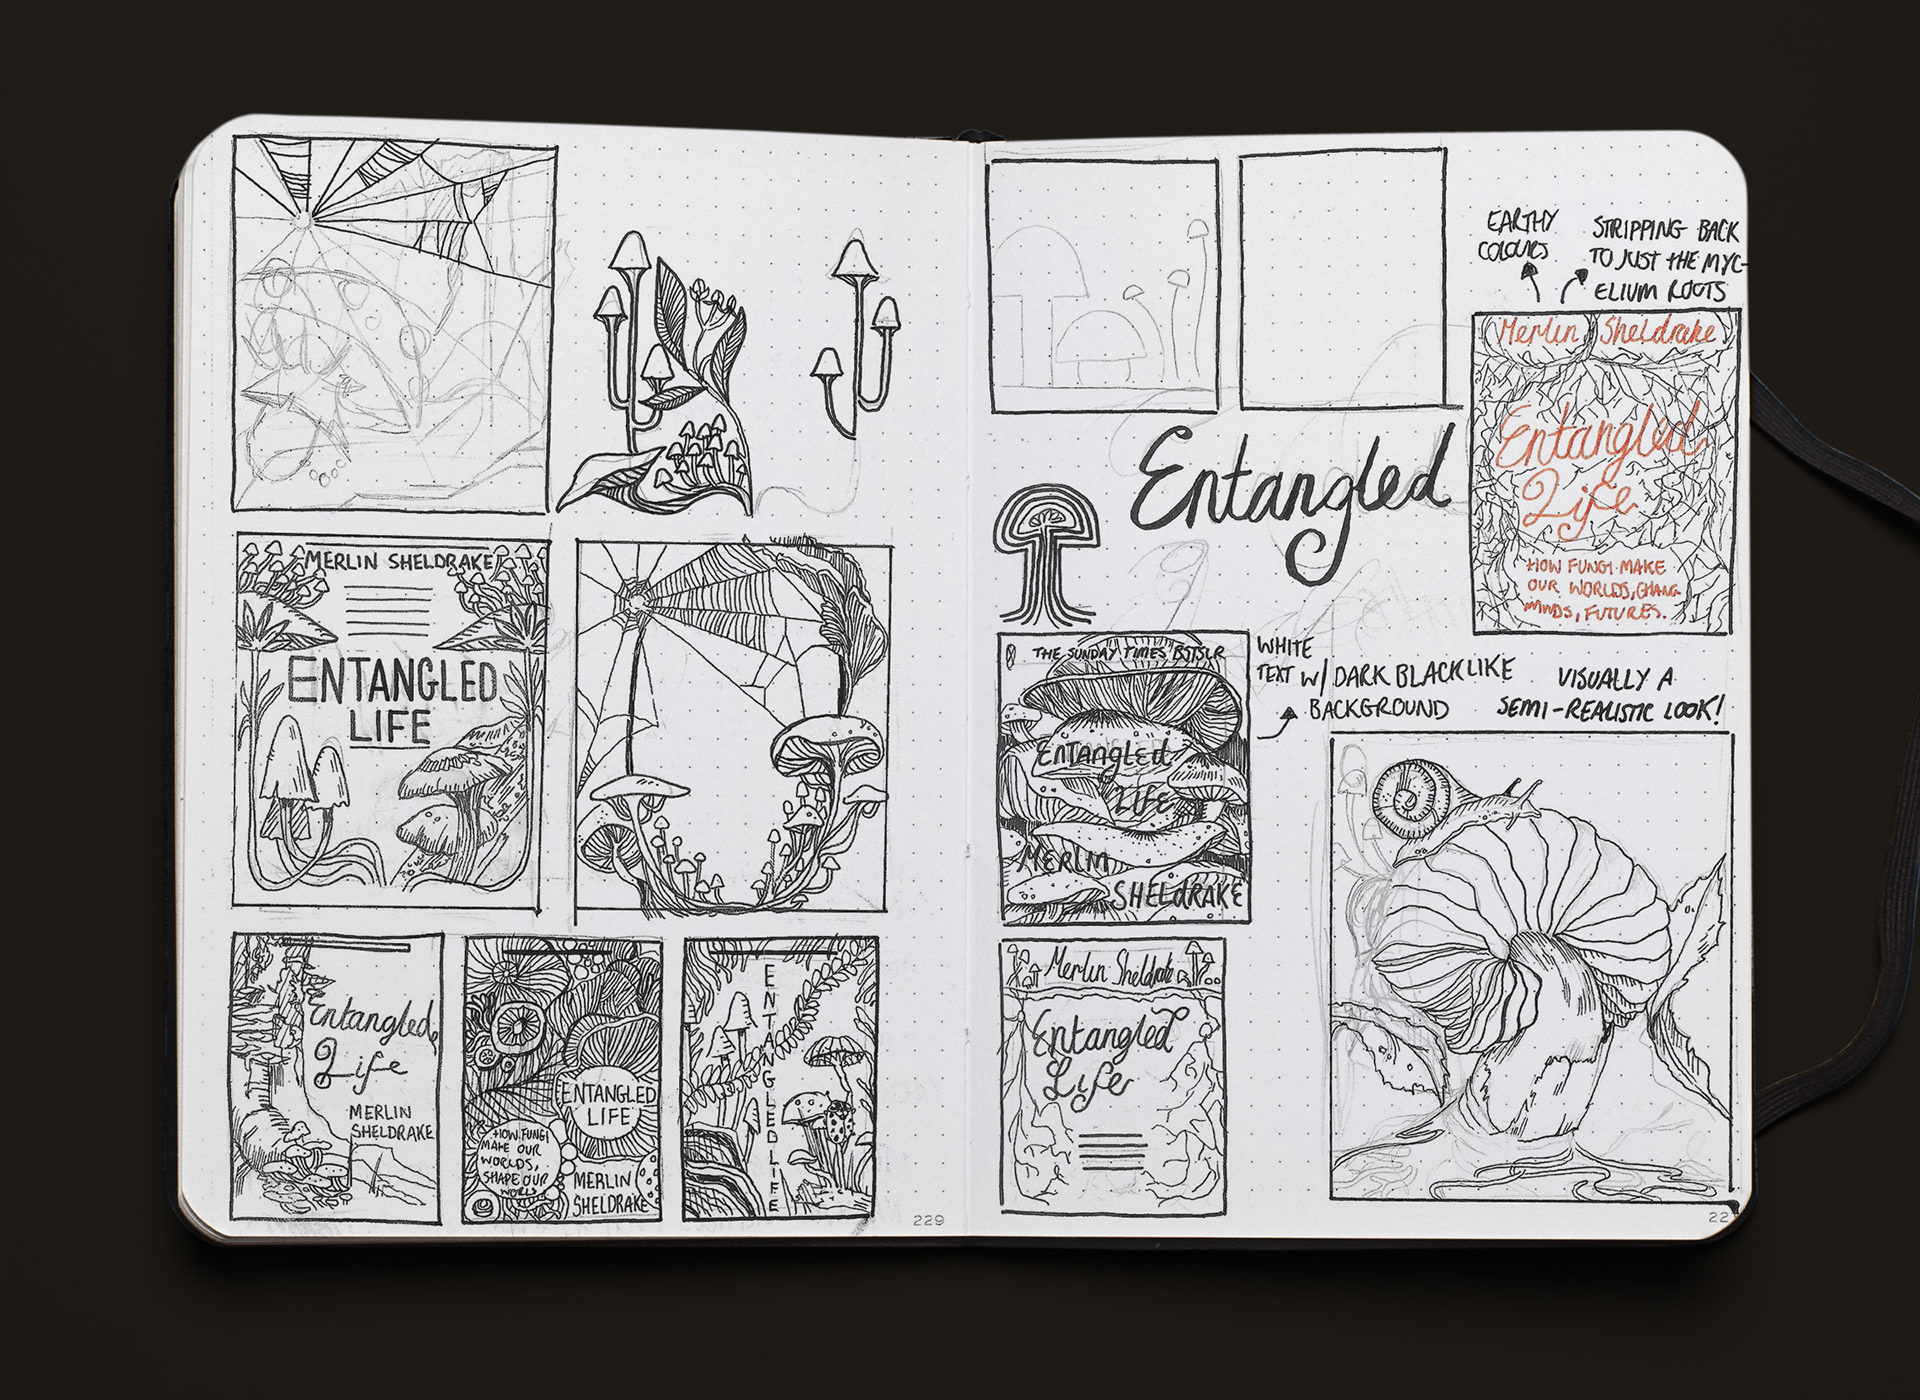 MERLIN SHELDRAKE
ENTANGLED
LIFE
Entangled
Life
MERLIN
SHELDRAKE
ENTANGLED
LIFE
HOW FUNGI
MAKE OUR
WORLDS,
SHAPE OUR
WORLD
MERLIN
SHELDRAKE
ENTANGLED LIFE
229
EARTHY
COLOURS
STRIPPING BACK
TO JUST THE MYC-
ELIUM ROOTS
Merlin Sheldrake
Entangled
Life
HOW FUNGI MAKE
OUR WORLDS, CHANG
MINDS, FUTURES.
Entangled
THE SUNDAY TIMES BSTSLR
ENTANGLED
LIFE
MERLIN
SHELDRAKE
WHITE
TEXT W/ DARK BLACK LIKE
BACKGROUND
VISUALLY A
SEMI-REALISTIC LOOK!
Merlin Sheldrake
Entangled
Life
22